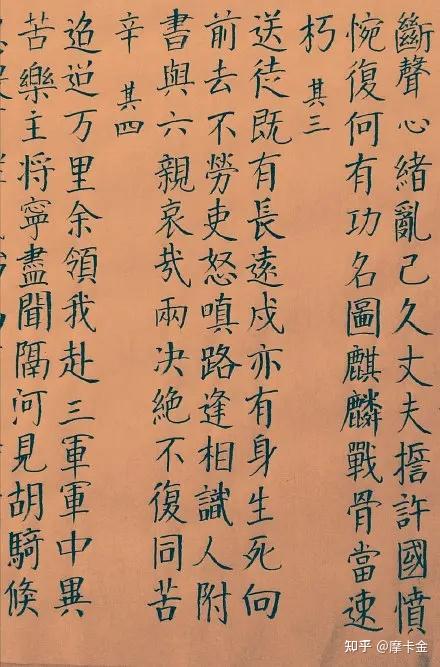 斷聲心緒亂已久丈夫擔許國憤
惋復何有功名圖麒麟戰骨當速
朽 其三
送徒既有長遠戍亦有身生死向
前去不勞吏怒嗔路逢相識人附
書與六親哀哉兩决絶不復同苦
辛 其四
迢迢万里余領我赴三軍軍中異
苦樂主将寧盡聞隔河見胡騎倏
知乎 @摩卡金